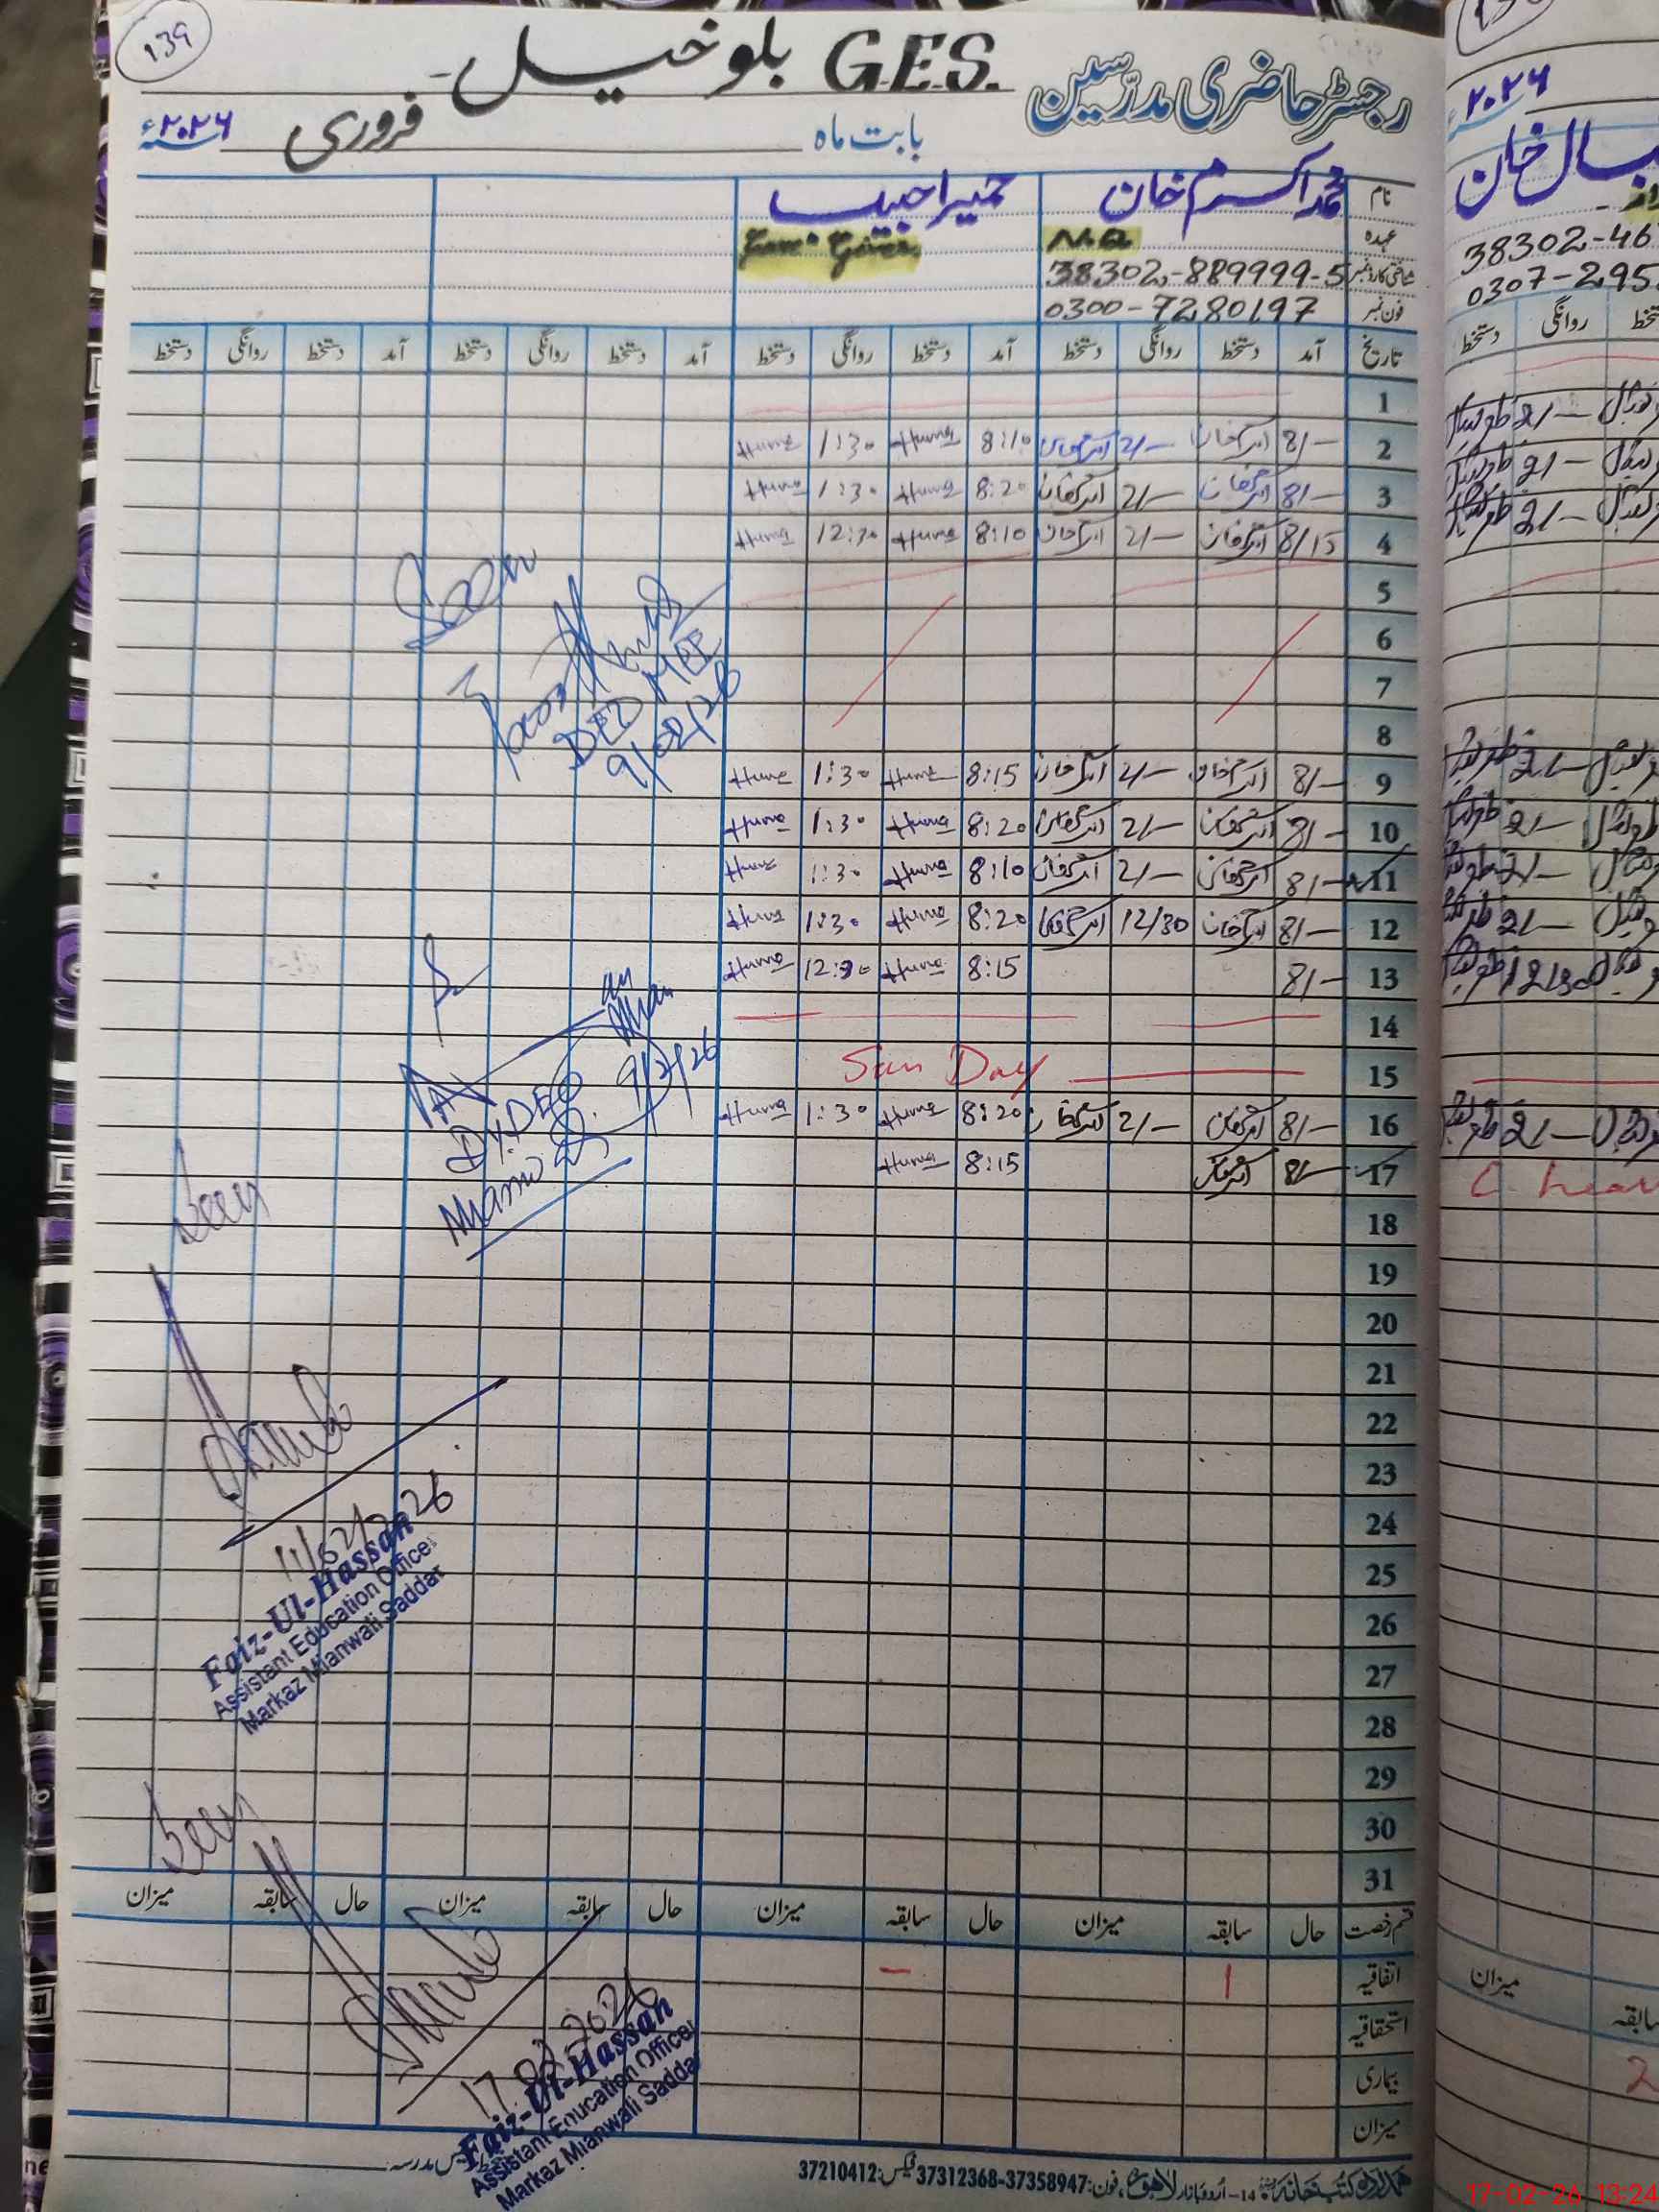 139
رجسٹر حاضری مدرسین G.E.S. بلوخیل
بابت ماہ فروری ۲۰۲۶ء
نام محمد اکرم خان حمیرا حبیب
عہدہ N.Q
شناختی کارڈ نمبر 38302-889999-5
فون نمبر 0300-7280197
تاریخ آمد دستخط روانگی دستخط آمد دستخط روانگی دستخط آمد دستخط روانگی دستخط آمد دستخط روانگی دستخط
1
2 8/- اکرم خان 2/- اکرم خان 8:10 Huma 1:30 Huma
3 8/- اکرم خان 2/- اکرم خان 8:20 Huma 1:30 Huma
4 8/15 اکرم خان 2/- اکرم خان 8:10 Huma 12:30 Huma
5
6
7
8
9 8/- اکرم خان 2/- اکرم خان 8:15 Huma 1:30 Huma
10 8/- اکرم خان 2/- اکرم خان 8:20 Huma 1:30 Huma
11 8/- اکرم خان 2/- اکرم خان 8:10 Huma 1:30 Huma
12 8/- اکرم خان 12/30 اکرم خان 8:20 Huma 1:30 Huma
13 8/- 8:15 Huma 12:30 Huma
14
15 Sun Day
16 8/- اکرم خان 2/- اکرم خان 8:20 Huma 1:30 Huma
17 8/- اکرم خان 8:15 Huma
18
19
20
21
22
23
24
25
26
27
28
29
30
31
قسم رخصت حال سابقہ میزان حال سابقہ میزان حال سابقہ میزان حال سابقہ میزان
اتفاقیہ 1 -
استحقاقیہ
بیماری
میزان
Seen
DEO MEE
9/02/26
Dy.DEO 9/2/26
Seen
11/02/2026
Faiz-Ul-Hassan
Assistant Education Officer
Markaz Mianwali Saddar
Seen
17.02.2026
Faiz-Ul-Hassan
Assistant Education Officer
Markaz Mianwali Saddar
14-اردو بازار لاہور، فون: 37358947-37312368 فیکس: 37210412
۲۰۲۶
خان
38302-46
0307-295
دستخط روانگی
میزان
سابقہ
2
17-02-26 13:24